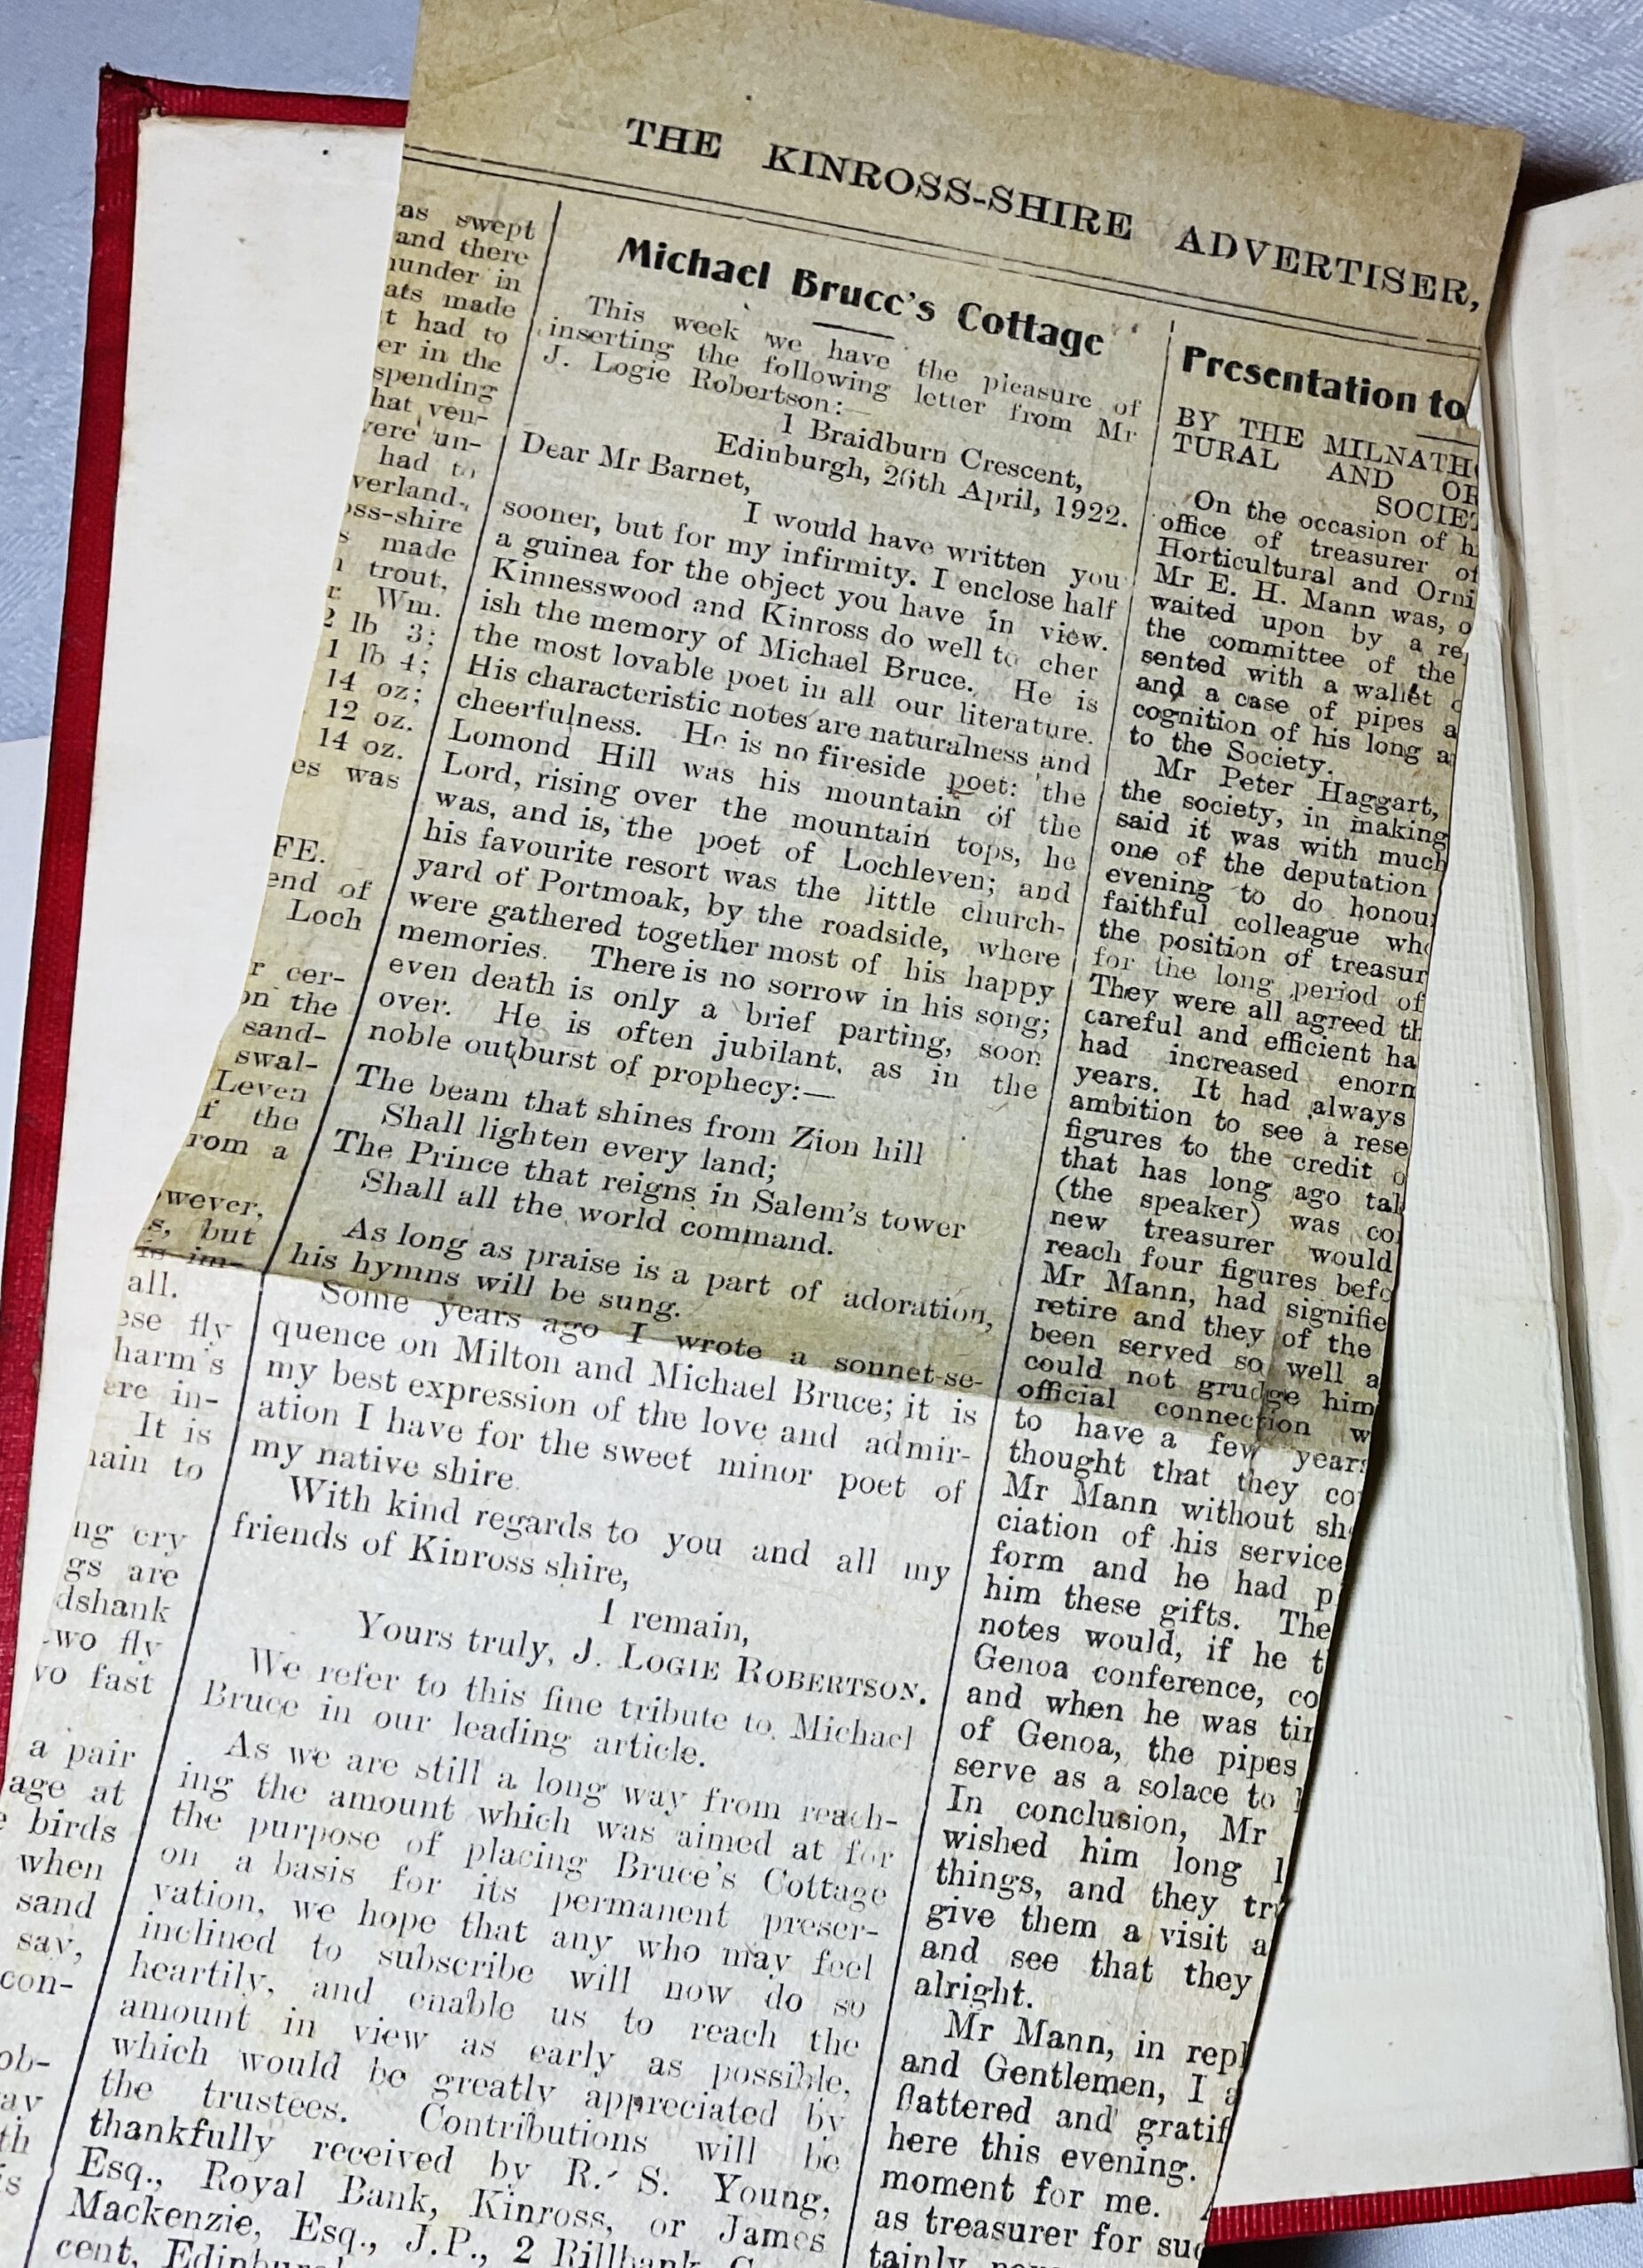 THE KINROSS-SHIRE ADVERTISER,
as swept
and there
under in
ats made
t had to
er in the
spending
hat ven-
vere un-
had to
verland,
oss-shire
s made
trout,
r Wm.
2 lb 3;
1 lb 4;
14 oz;
12 oz.
14 oz.
es was
FE.
end of
Loch
r cer-
on the
sand-
swal-
Leven
f the
rom a
wever,
s, but
is im-
all.
ese fly
harm's
ere in-
It is
ain to
ng cry
gs are
dshank
two fly
vo fast
a pair
age at
birds
when
sand
say,
con-
ob-
ay
th
is
Michael Bruce's Cottage
This week we have the pleasure of
inserting the following letter from Mr
J. Logie Robertson:—
1 Braidburn Crescent,
Edinburgh, 26th April, 1922.
Dear Mr Barnet,
I would have written you
sooner, but for my infirmity. I enclose half
a guinea for the object you have in view.
Kinnesswood and Kinross do well to cher
ish the memory of Michael Bruce. He is
the most lovable poet in all our literature.
His characteristic notes are naturalness and
cheerfulness. He is no fireside poet: the
Lomond Hill was his mountain of the
Lord, rising over the mountain tops, he
was, and is, the poet of Lochleven; and
his favourite resort was the little church-
yard of Portmoak, by the roadside, where
were gathered together most of his happy
memories. There is no sorrow in his song;
even death is only a brief parting, soon
over. He is often jubilant, as in the
noble outburst of prophecy:—
The beam that shines from Zion hill
Shall lighten every land;
The Prince that reigns in Salem's tower
Shall all the world command.
As long as praise is a part of adoration,
his hymns will be sung.
Some years ago I wrote a sonnet-se-
quence on Milton and Michael Bruce; it is
my best expression of the love and admir-
ation I have for the sweet minor poet of
my native shire.
With kind regards to you and all my
friends of Kinross shire,
I remain,
Yours truly, J. LOGIE ROBERTSON.
We refer to this fine tribute to Michael
Bruce in our leading article.
As we are still a long way from reach-
ing the amount which was aimed at for
the purpose of placing Bruce's Cottage
on a basis for its permanent preser-
vation, we hope that any who may feel
inclined to subscribe will now do so
heartily, and enable us to reach the
amount in view as early as possible,
which would be greatly appreciated by
the trustees. Contributions will be
thankfully received by R. S. Young,
Esq., Royal Bank, Kinross, or James
Mackenzie, Esq., J.P., 2 Rillbank
cent, Edinbur
Presentation to
BY THE MILNATHO
TURAL AND OR
SOCIET
On the occasion of h
office of treasurer of
Horticultural and Orni
Mr E. H. Mann was, o
waited upon by a re
the committee of the
sented with a wallet
and a case of pipes a
cognition of his long a
to the Society.
Mr Peter Haggart,
the society, in making
said it was with much
one of the deputation
evening to do honour
faithful colleague who
the position of treasur
for the long period of
They were all agreed th
careful and efficient ha
had increased enorm
years. It had always
ambition to see a rese
figures to the credit o
that has long ago tak
(the speaker) was co
new treasurer would
reach four figures befo
Mr Mann, had signifie
retire and they of the
been served so well a
could not grudge him
official connection w
to have a few years
thought that they co
Mr Mann without sh
ciation of his service
form and he had p
him these gifts. The
notes would, if he t
Genoa conference, co
and when he was tir
of Genoa, the pipes
serve as a solace to
In conclusion, Mr
wished him long l
things, and they tru
give them a visit a
and see that they
alright.
Mr Mann, in repl
and Gentlemen, I a
flattered and gratif
here this evening.
moment for me.
as treasurer for suc